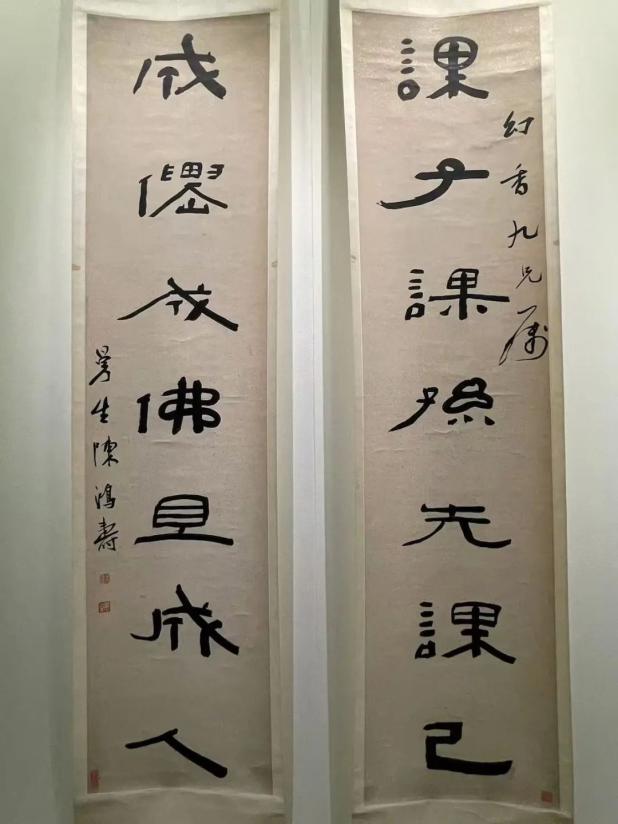 課子課孫先課己
幻香九兄属
成僊成佛且成人
曼生陳鴻壽